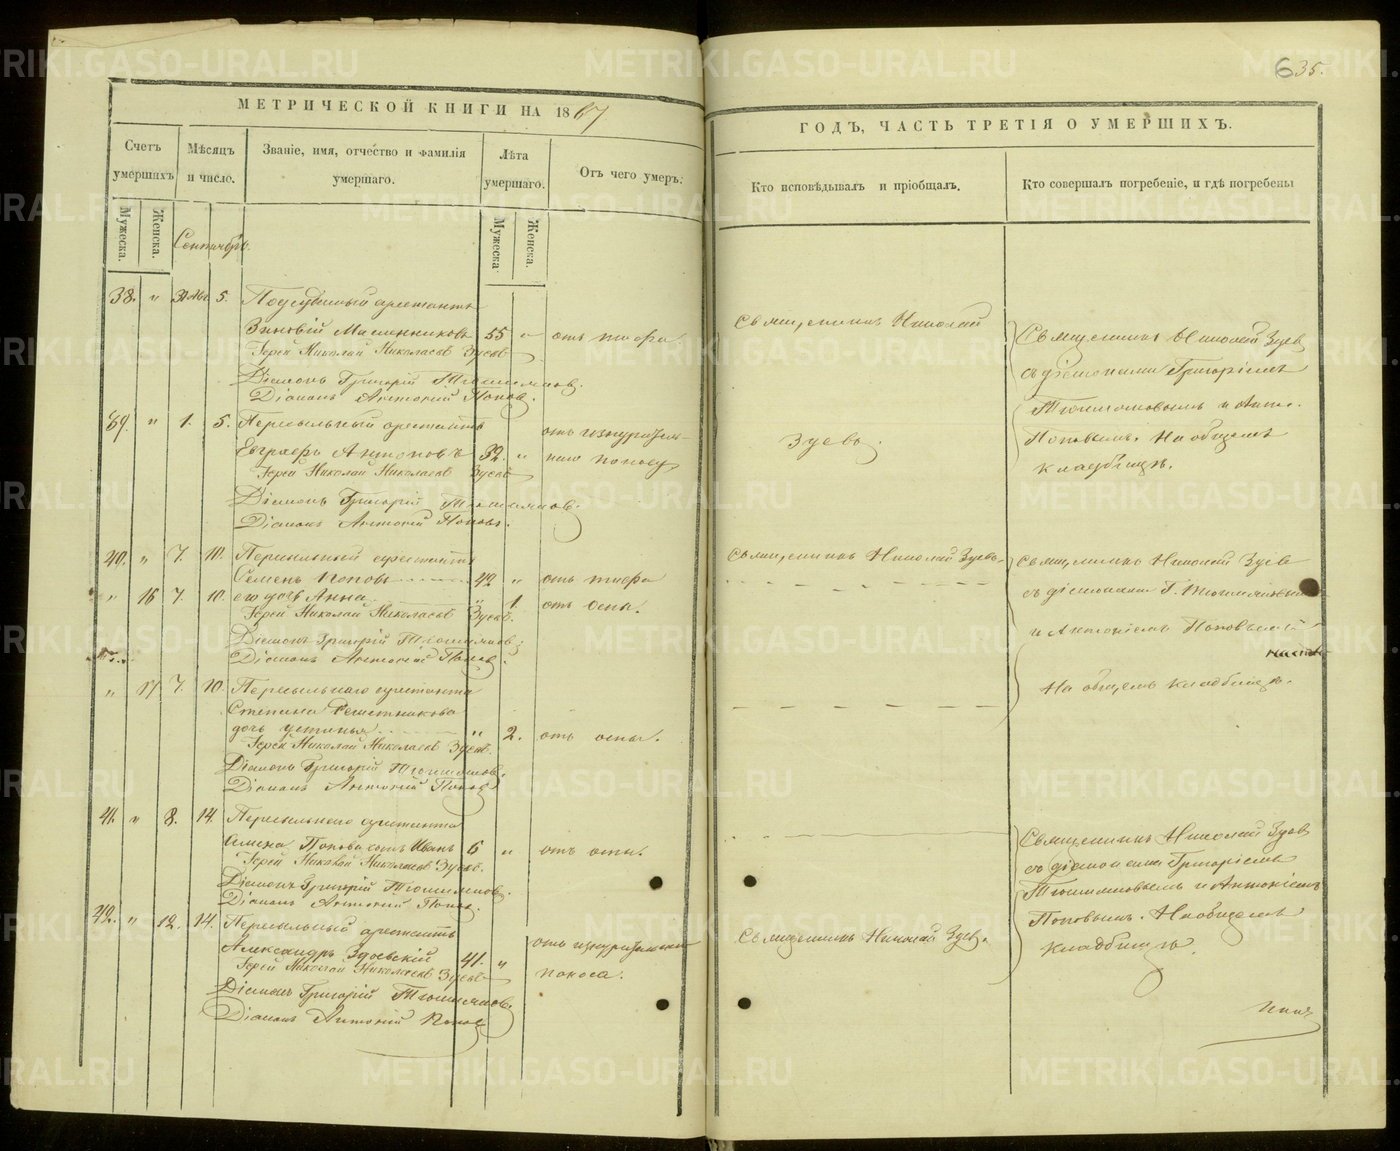 635.
МЕТРИЧЕСКОЙ КНИГИ НА 1867
ГОДЪ, ЧАСТЬ ТРЕТІЯ О УМЕРШИХЪ.
Счетъ умершихъ
Мужеска.
Женска.
Мѣсяцъ и число.
Званіе, имя, отчество и фамилія умершаго.
Лѣта умершаго.
Мужеска
Женска.
Отъ чего умеръ.
Кто исповѣдывалъ и пріобщалъ.
Кто совершалъ погребеніе, и гдѣ погребены
Сентябрь.
38. " 5. Подсудимый арестантъ
Зиновій Масленниковъ 55 " отъ тифа
Іерей Николай Николаевъ Зуевъ
Діаконъ Григорій
Діаконъ Антоній Поповъ.
Священникъ Николай
Зуевъ.
Священникъ Николай Зуев
съ діаконами Григоріемъ
и Анто.
Поповымъ. На общемъ
кладбищѣ.
39. " 1. 5. Пересыльный арестантъ отъ изнурительн
Евграфъ Антоновъ 52. " наго поносу
Іерей Николай Николаевъ Зуевъ
Діаконъ Григорій
Діаконъ Антоній Поповъ.
40. " 7. 10. Пересыльный арестантъ
Семенъ Поповъ 42 " отъ тифа
" 16 7. 10. его дочь Анна " 1. отъ оспы.
Іерей Николай Николаевъ Зуевъ.
Діаконъ Григорій
Діаконъ Антоній Попов.
Священникъ Николай Зуевъ.
Священникъ Николай Зуев
съ діаконами Г.
и Антоніемъ Поповымъ
На общемъ кладбищѣ.
" 17 7. 10. Пересыльнаго арестанта
Степана Решетникова
дочь Устинья " 2. отъ оспы.
Іерей Николай Николаевъ Зуевъ.
Діаконъ Григорій
Діаконъ Антоній Попов
41. " 8. 14. Пересыльнаго арестанта
Семена Попова сынъ Иванъ 6 " отъ оспы.
Іерей Николай Николаевъ Зуевъ.
Діаконъ Григорій
Діаконъ Антоній Попов.
Священникъ Николай Зуев
съ діаконами Григоріемъ
и Антоніемъ
Поповымъ. На общемъ
кладбищѣ
42. " 12. 14. Пересыльный арестантъ отъ изнурительнаго
Александръ 41. " поноса.
Іерей Николай Николаевъ Зуевъ
Діаконъ Григорій
Діаконъ Антоній Попов
Священникъ Николай Зуев.
METRIKI.GASO-URAL.RU